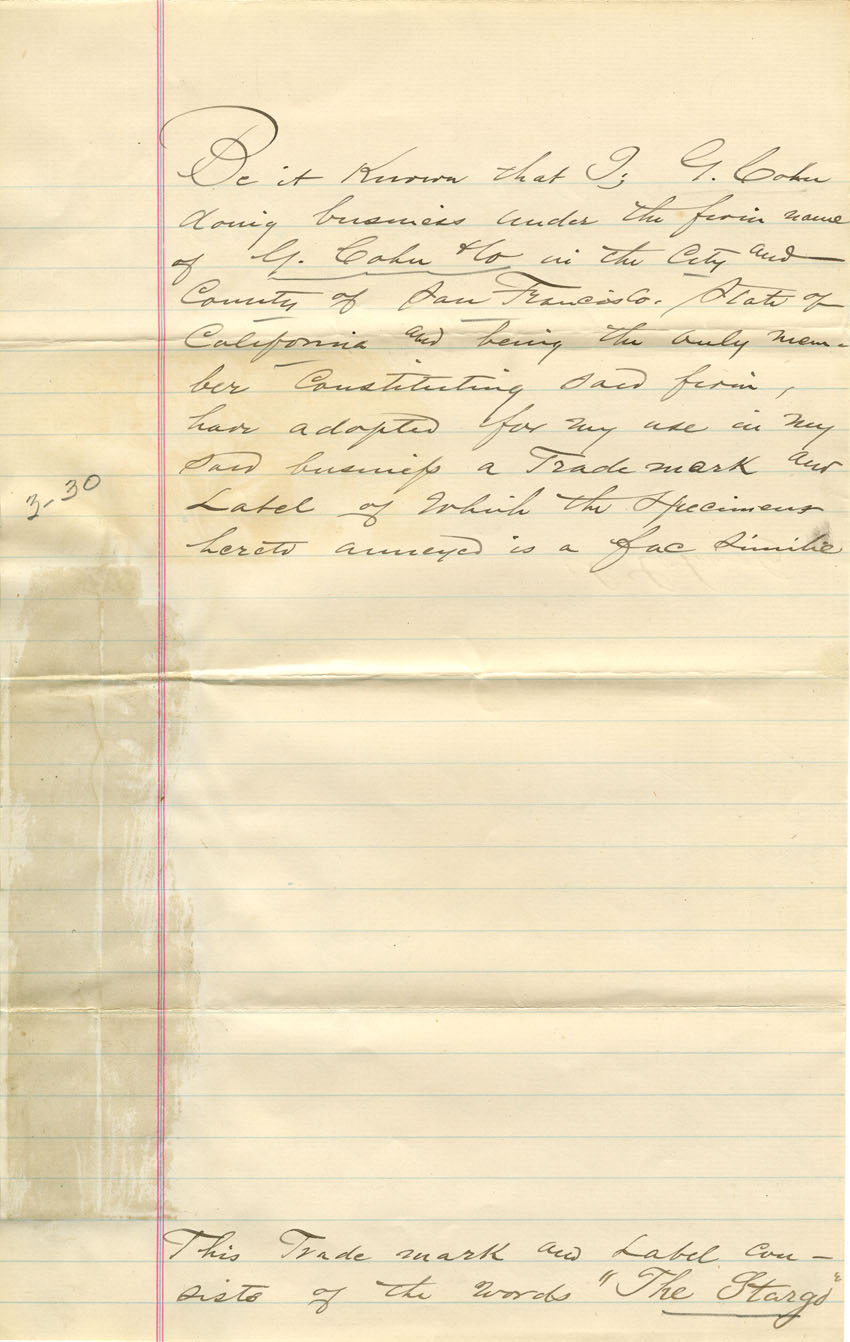 Be it Known that I, G. Cohn
doing business under the firm name
of G. Cohn & Co in the City and
County of San Francisco. State of
California and being the only mem-
ber Constituting said firm,
have adopted for my use in my
said business a Trade mark and
Label of Which the Specimens
3-30
hereto annexed is a fac Similie
This Trade mark and Label con-
sists of the Words "The Stargo"